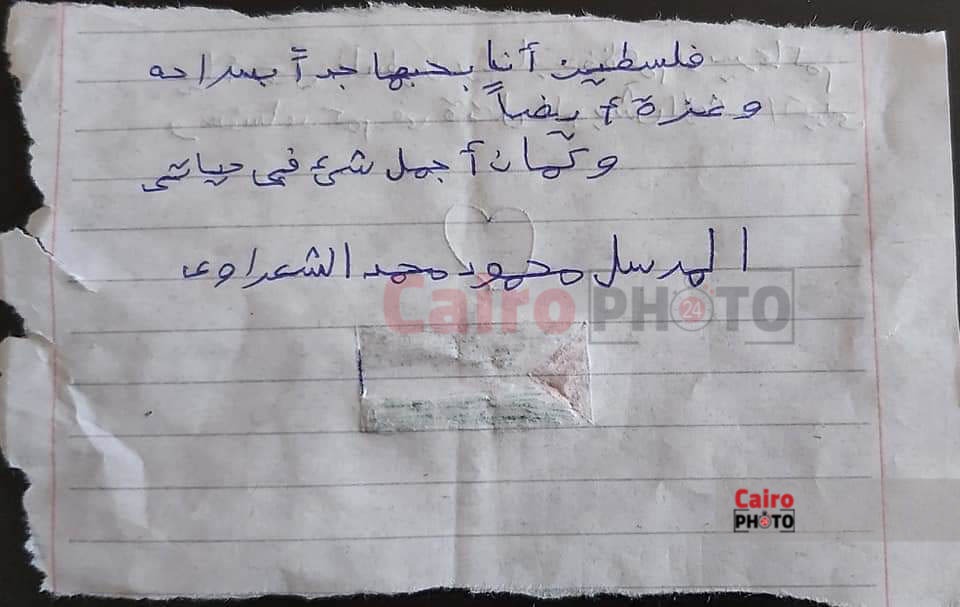 فلسطين أنا بحبها جداً بصراحه
وغزة أيضاً
وكمان أجمل شئ في حياتي
المرسل محمود محمد الشعراوى
Cairo PHOTO 24
Cairo
PHOTO